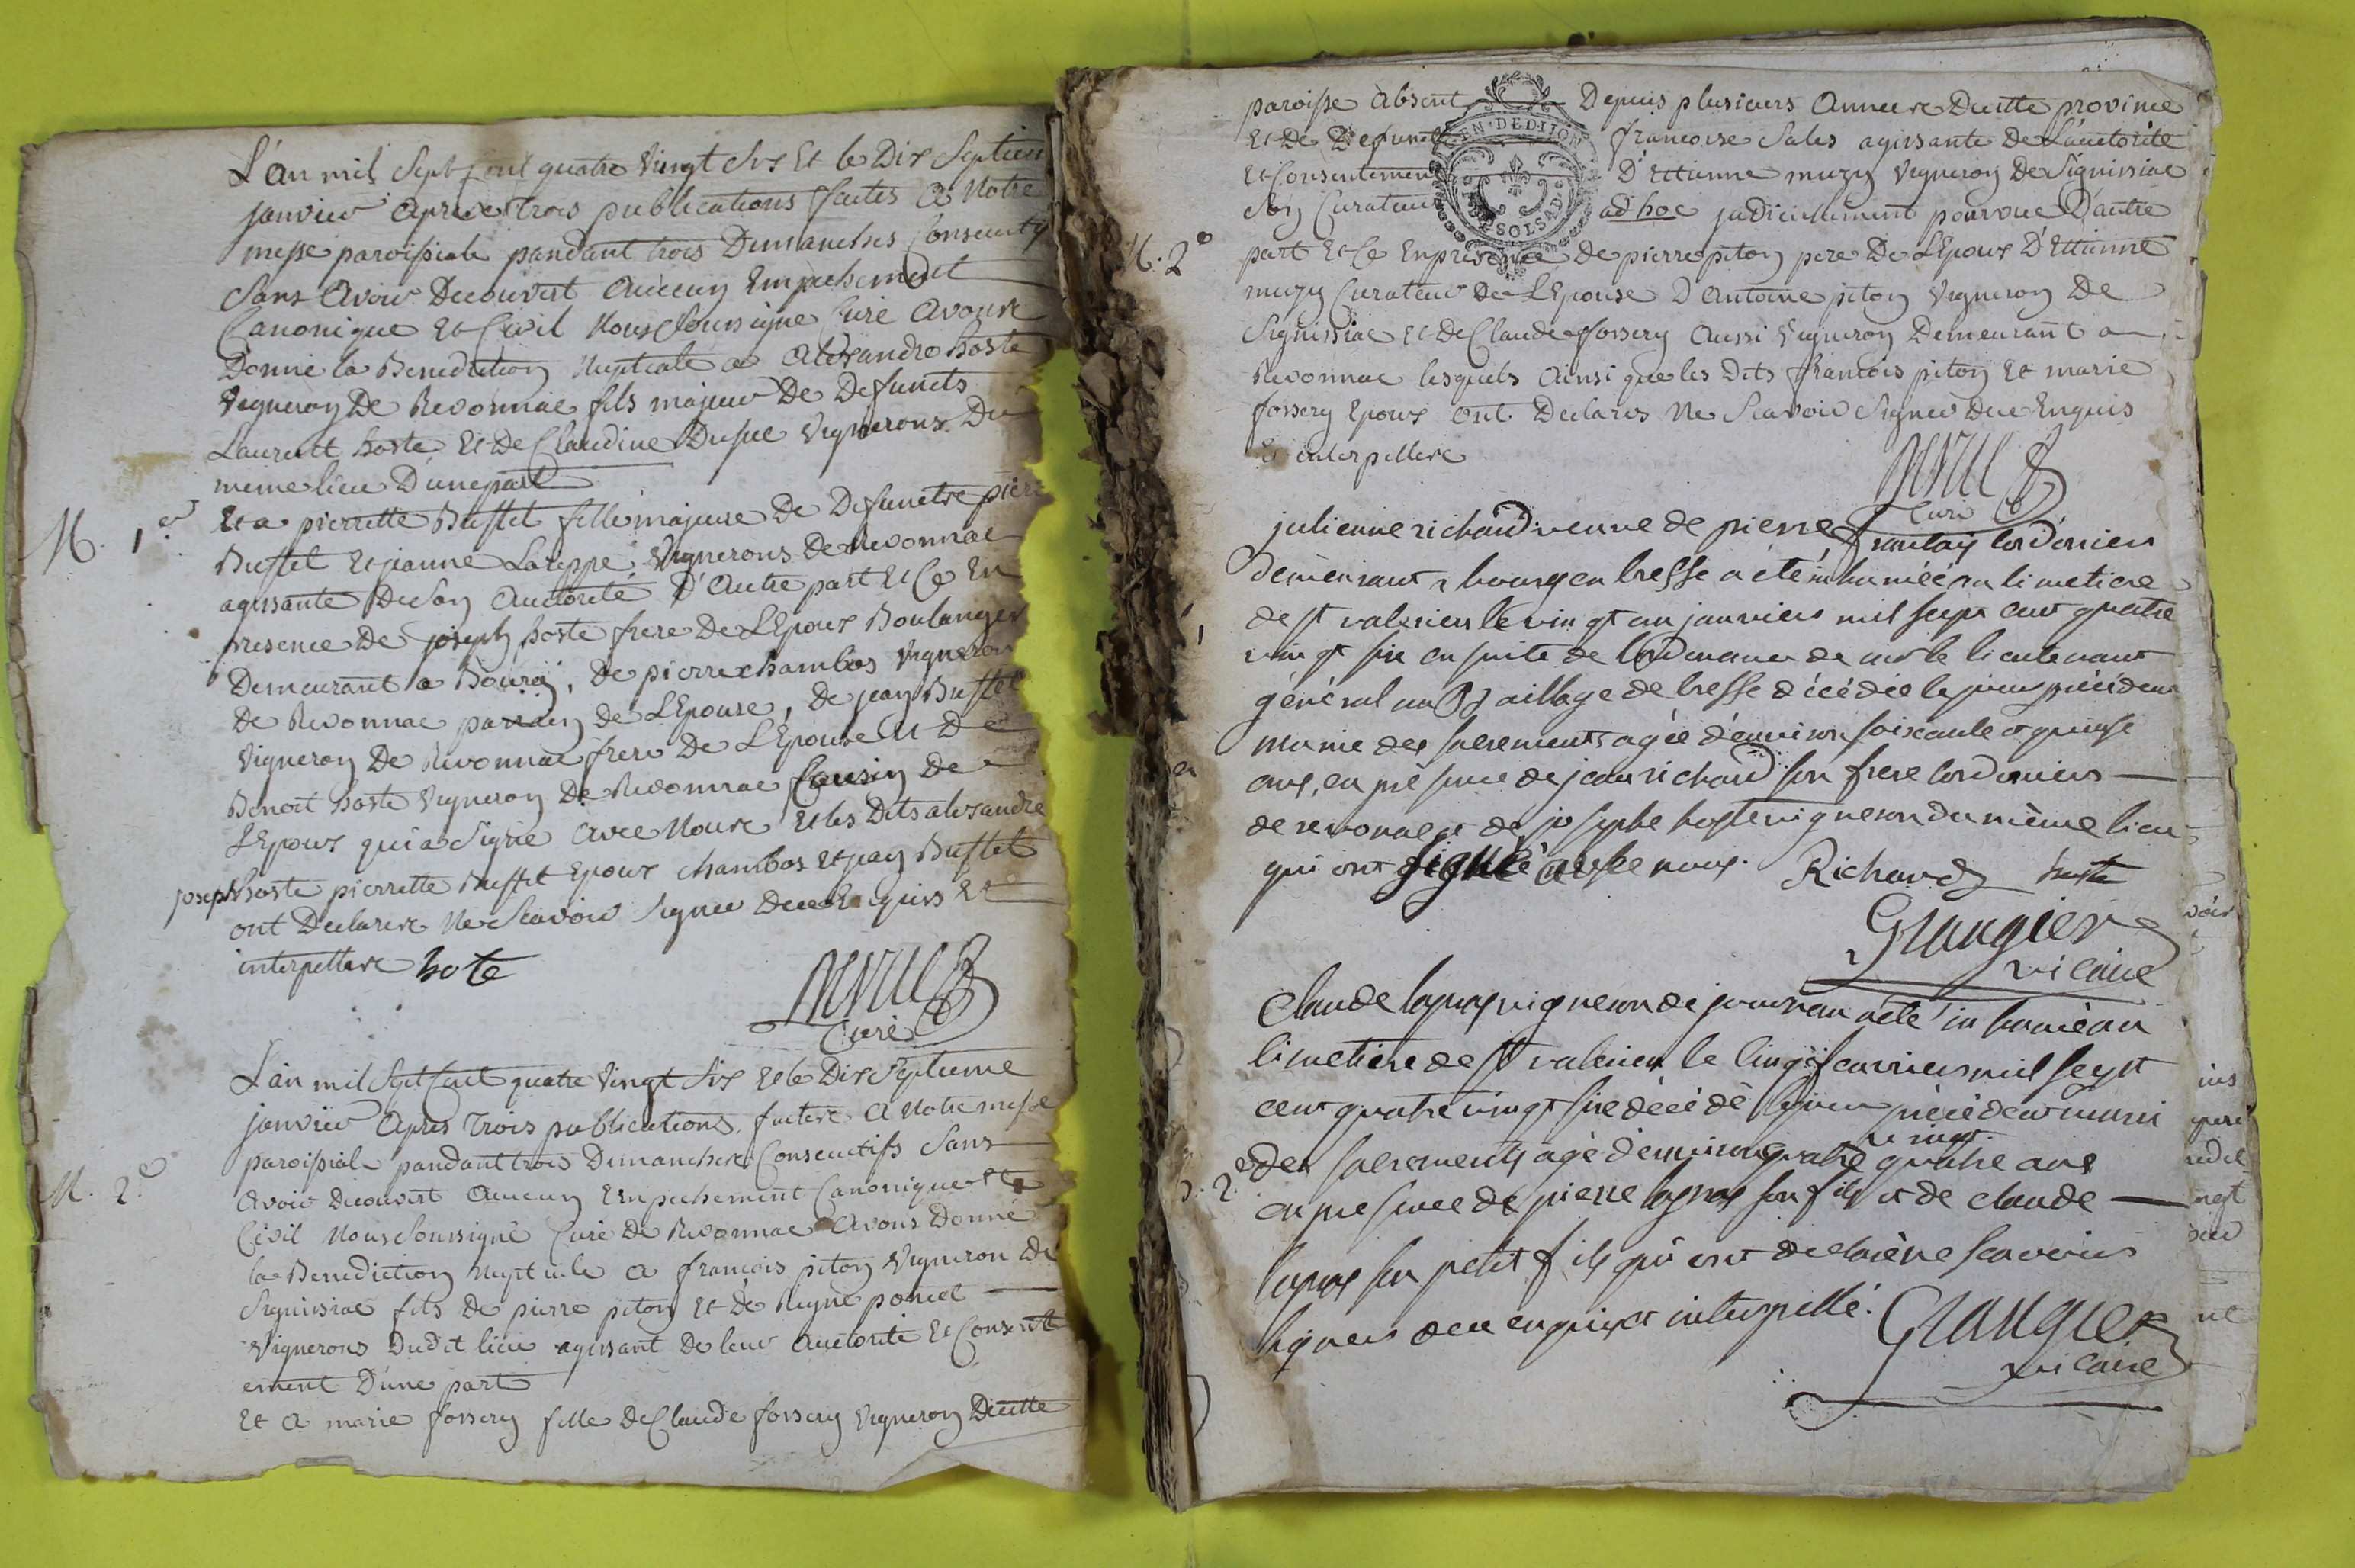 L'an mil Sept Cent quatre Vingt Six Et le Dix Septiem
janvier aprese trois publications faites a Notre
messe paroissiale pandant trois Dimanches Consecutifs
Sans Avoir Decouvert Aucun Empechement
Canonique Et Civil Nous Soussigne Curé Avonse
Donné la Benediction Nuptiale a Alexandre hoste
Vigneron De Revonnac fils majeur De Defuncts
Laurent hoste Et De Claudine Vignerons Du
meme lieu D'une part
M. 1er
Et a pierrette Buffet fille majeure De Defunctse pierre
Buffet Et jeanne Vignerons De Revonnac
agissante De Son Auctorité D'Autre part Et Ce En
presence De joseph hoste frere De L'Epoux Boulanger
Demeurant a Bourg, De pierre chambos Vigneron
De Revonnac parrain De L'Epouse, De jean Buffet
Vigneron De Revonnac frere De L'Epouse Et De
Benoit hoste Vigneron De Revonnac Cousin De
L'Epoux qui a Signé Avec Nouse Et les Dits alexandre
joseph hoste pierrette Buffet Epoux chambos Et jean Buffet
ont Declarese Ne Scavoir Signer Dece Enquis Et
interpellese hote
Curé
L'an mil Sept Cent quatre Vingt Six Et le Dix Septieme
janvier Apres trois publications faitese A Notre messe
paroissiale pandant trois Dimanchese Consecutifs Sans
M. 2e
Avoir Decouvert Aucun Empechement Canonique Et
Civil Nous Soussigné Curé De Revonnac Avons Donné
la Benediction Nuptiale a francois piton Vigneron De
Signissiac fils De pierre piton Et De Reyne poncet
Vignerons Dudit lieu agissant De leur Auctorité Et Consent
ement D'une part
Et a marie fossery fille De Claude fossery Vigneron Dicette
paroisse Absent Depuis plusieurs Anneese Dicette province
Et De Defuncte francoise Sales agissante De L'auctorité
Et Consentement D'Ettienne muzy Vigneron De Signissiac
Son Curateur ad hoc judiciellement pourvue D'autre
M. 2e
part Et Ce En presence De pierre piton pere De L'Epoux D'Ettienne
muzy Curateur De L'Epouse D'Antoine piton Vigneron De
Signissiac Et De Claude fossery Aussi Vigneron Demeurant a
Revonnac lesquels Ainsi que les Dits francois piton Et marie
fossery Epoux ont Declares Ne Scavoir Signer Dece Enquis
Et interpellese
Curé
GEN. DE DIJON
SOLS
julienne richard veuve de pierre cordonier
demeurant a bourg en bresse a été inhumée au cimetiere
de st valerien le vingt un janvier mil sept cent quatre
vingt six en suite de l'ordonance de mr le lieutenant
général au Baillage de bresse décédée le jour précédent
munie des sacrements agée d'environ soixante et quinze
ans, en présence de jean richard son frere cordonier
de revonac et de josephe hoste vigneron du même lieu
qui ont signé avec nous. Richard hoste
Grangier
vicaire
Claude lapras vigneron de journan a été inhumé au
cimetiere de st valerien le cinq fevrier mil sept
cent quatre vingt six décédé le jour précédent muni
D. 2e
des sacrements agé d'environ quatre vingt quatre ans
en presence de pierre lapras son fils et de claude
lapras son petit fils qui ont declaré ne scavoir
signer dece enquis et interpellé. Grangier
vicaire